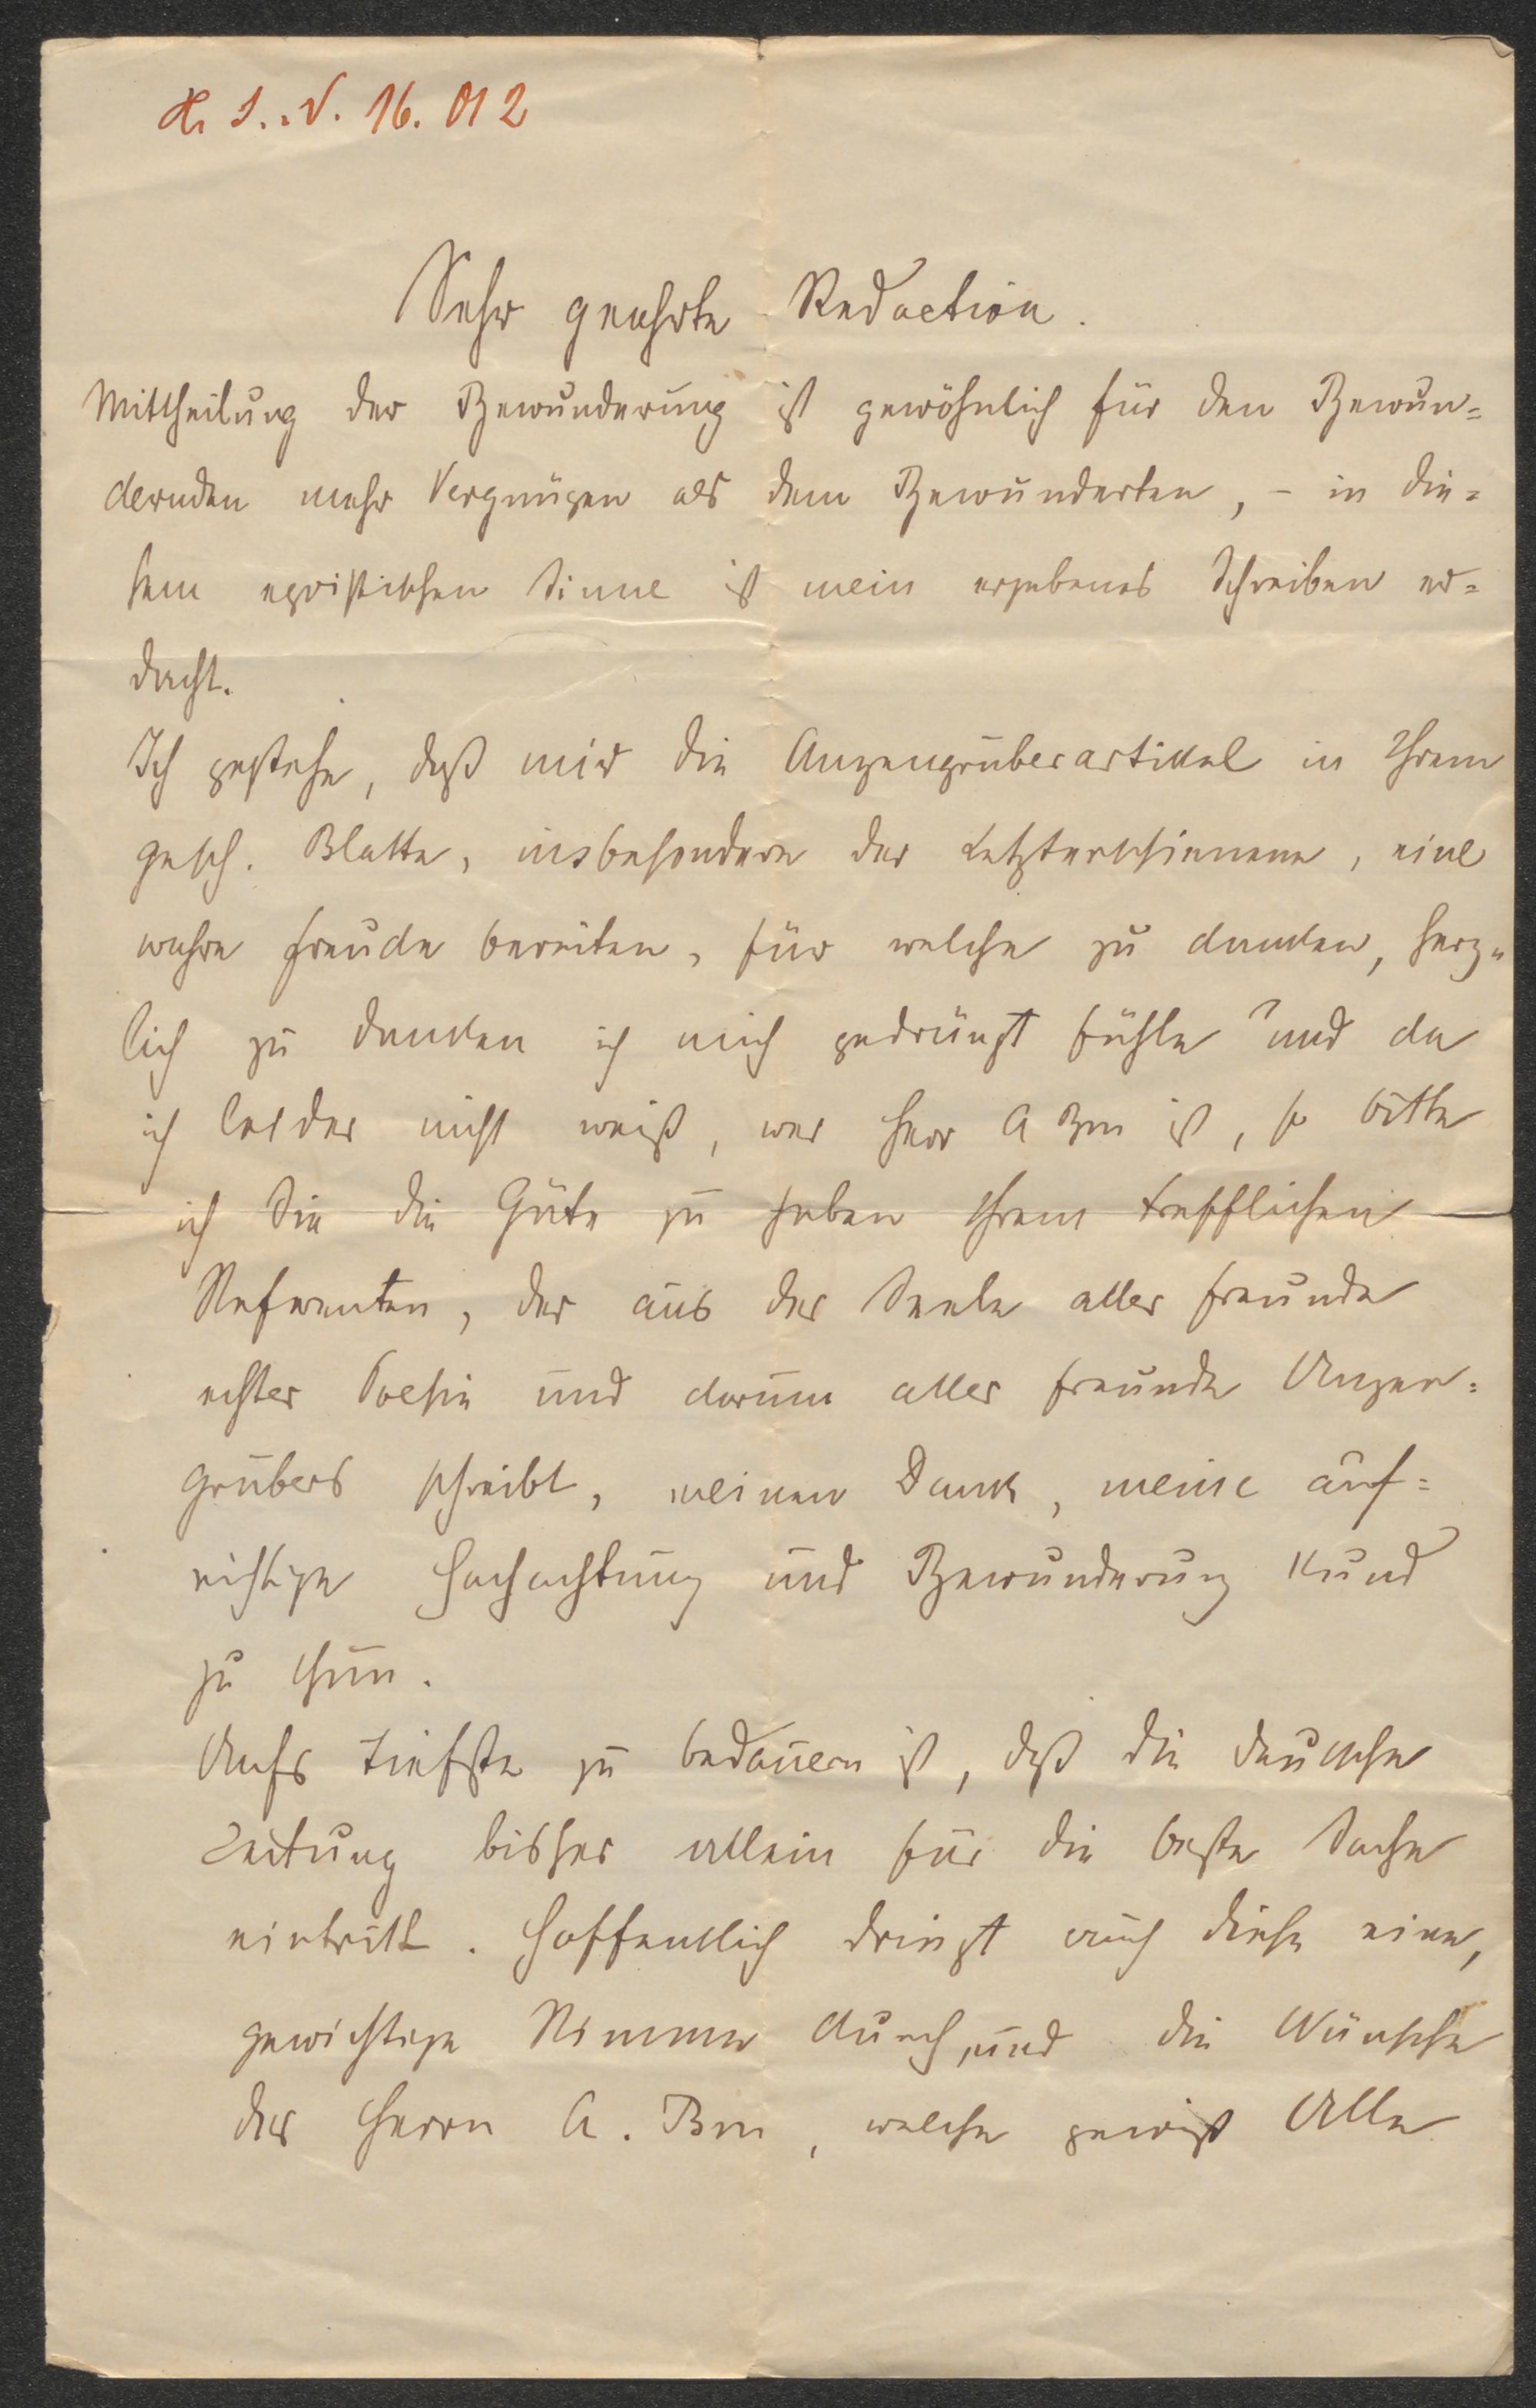 H. I. N. 16.012
Sehr geehrte Redaction.
Mittheilung der Bewunderung ist gewöhnlich für den Bewun=
dernden mehr Vergnügen als dem Bewunderten, – in die=
sem egoistischen Sinne ist mein ergebenes Schreiben er=
dacht.
Ich gestehe, daß mir die Anzengruberartikel in Ihrem
gesch. Blatte, insbesondere der Letzterschienene, eine
wahre Freude bereiten, für welche zu danken, herz=
lich zu danken ich mich gedrängt fühle und da
ich leider nicht weiß, wer Herr A Bm ist, so bitte
ich Sie die Güte zu haben Ihrem trefflichen
Referenten, der aus der Seele aller Freunde
echter Poesie und darum aller Freunde Anzen=
grubers schreibt, meinen Dank, meine auf=
richtige Hochachtung und Bewunderung kund
zu thun.
Aufs Tiefste zu bedauern ist, daß die deutsche
Zeitung bisher allein für die beste Sache
eintritt. Hoffentlich dringt auch diese eine,
gewichtige Stimme durch, und die Wünsche
des Herrn A. Bm, welche gewiß Alle